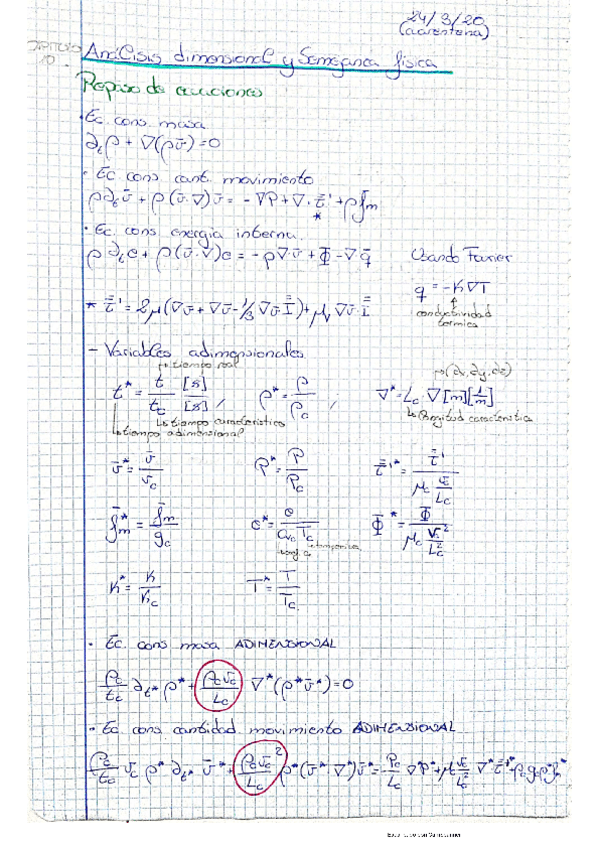 24/3/20
(cuarentena)
CAPÍTULO 10
Análisis dimensional y Semejanza física
Repaso de ecuaciones
· Ec. cons masa
∂tρ + ∇(ρv̄) = 0
· Ec cons cant. movimiento
ρ∂tv̄ + ρ(v̄·∇)v̄ = -∇P + ∇·τ̿' + ρf̄m
*
· Ec. cons energía interna.
ρ∂te + ρ(v̄·∇)e = -ρ∇v̄ + Φ̄ - ∇q̄
Usando Fourier
q̄ = -K∇T
conductividad térmica
* τ̿' = 2μ(∇v̄ + ∇v̄ - 1/3 ∇v̄ I̿) + μv ∇v̄·I̿
- Variables adimensionales
t* = t/tc [s]/[s] , ρ* = ρ/ρc ; ∇* = Lc·∇ [m][1/m]
↳ tiempo real
↳ tiempo característico
↳ tiempo adimensional
↳ (dx,dy,dz)
↳ longitud característica
v̄* = v̄/vc P* = P/Pc τ̿'* = τ̿'/(μc vc/Lc)
f̄m* = f̄m/gc e* = e/(Cvc Tc) Φ̄* = Φ̄/(μc vc²/Lc²)
K* = K/Kc T* = T/Tc
· Ec. cons masa ADIMENSIONAL
ρc/tc ∂t* ρ* + ρcvc/Lc ∇*(ρ*v̄*) = 0
· Ec cons cantidad movimiento ADIMENSIONAL
ρc/tc vc ρ* ∂t* v̄* + ρcvc²/Lc ρ*(v̄*·∇*)v̄* = -Pc/Lc ∇P* + μc vc/Lc² ∇*τ̿'* + ρcgcρ*f̄m*